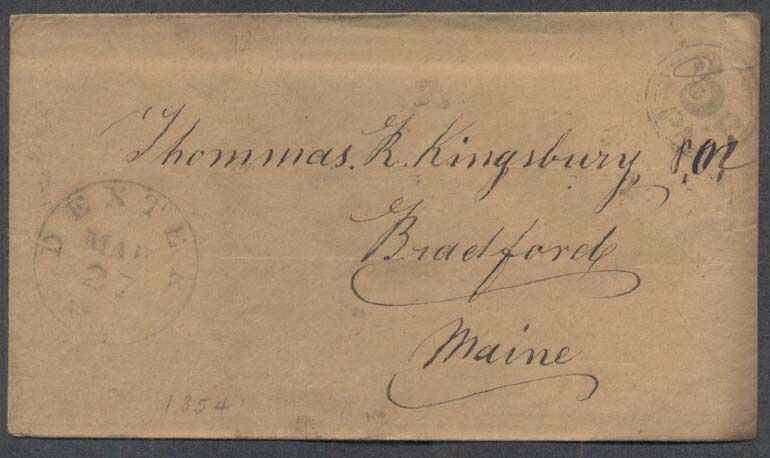 12
3
Thommas. R. Kingsbury
Bradford
Maine
DEXTER
MAR
27
1854